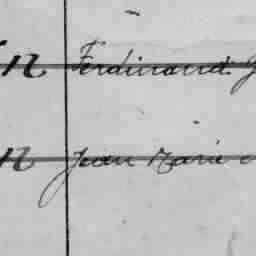 n Ferdinand J
n Jean Marie